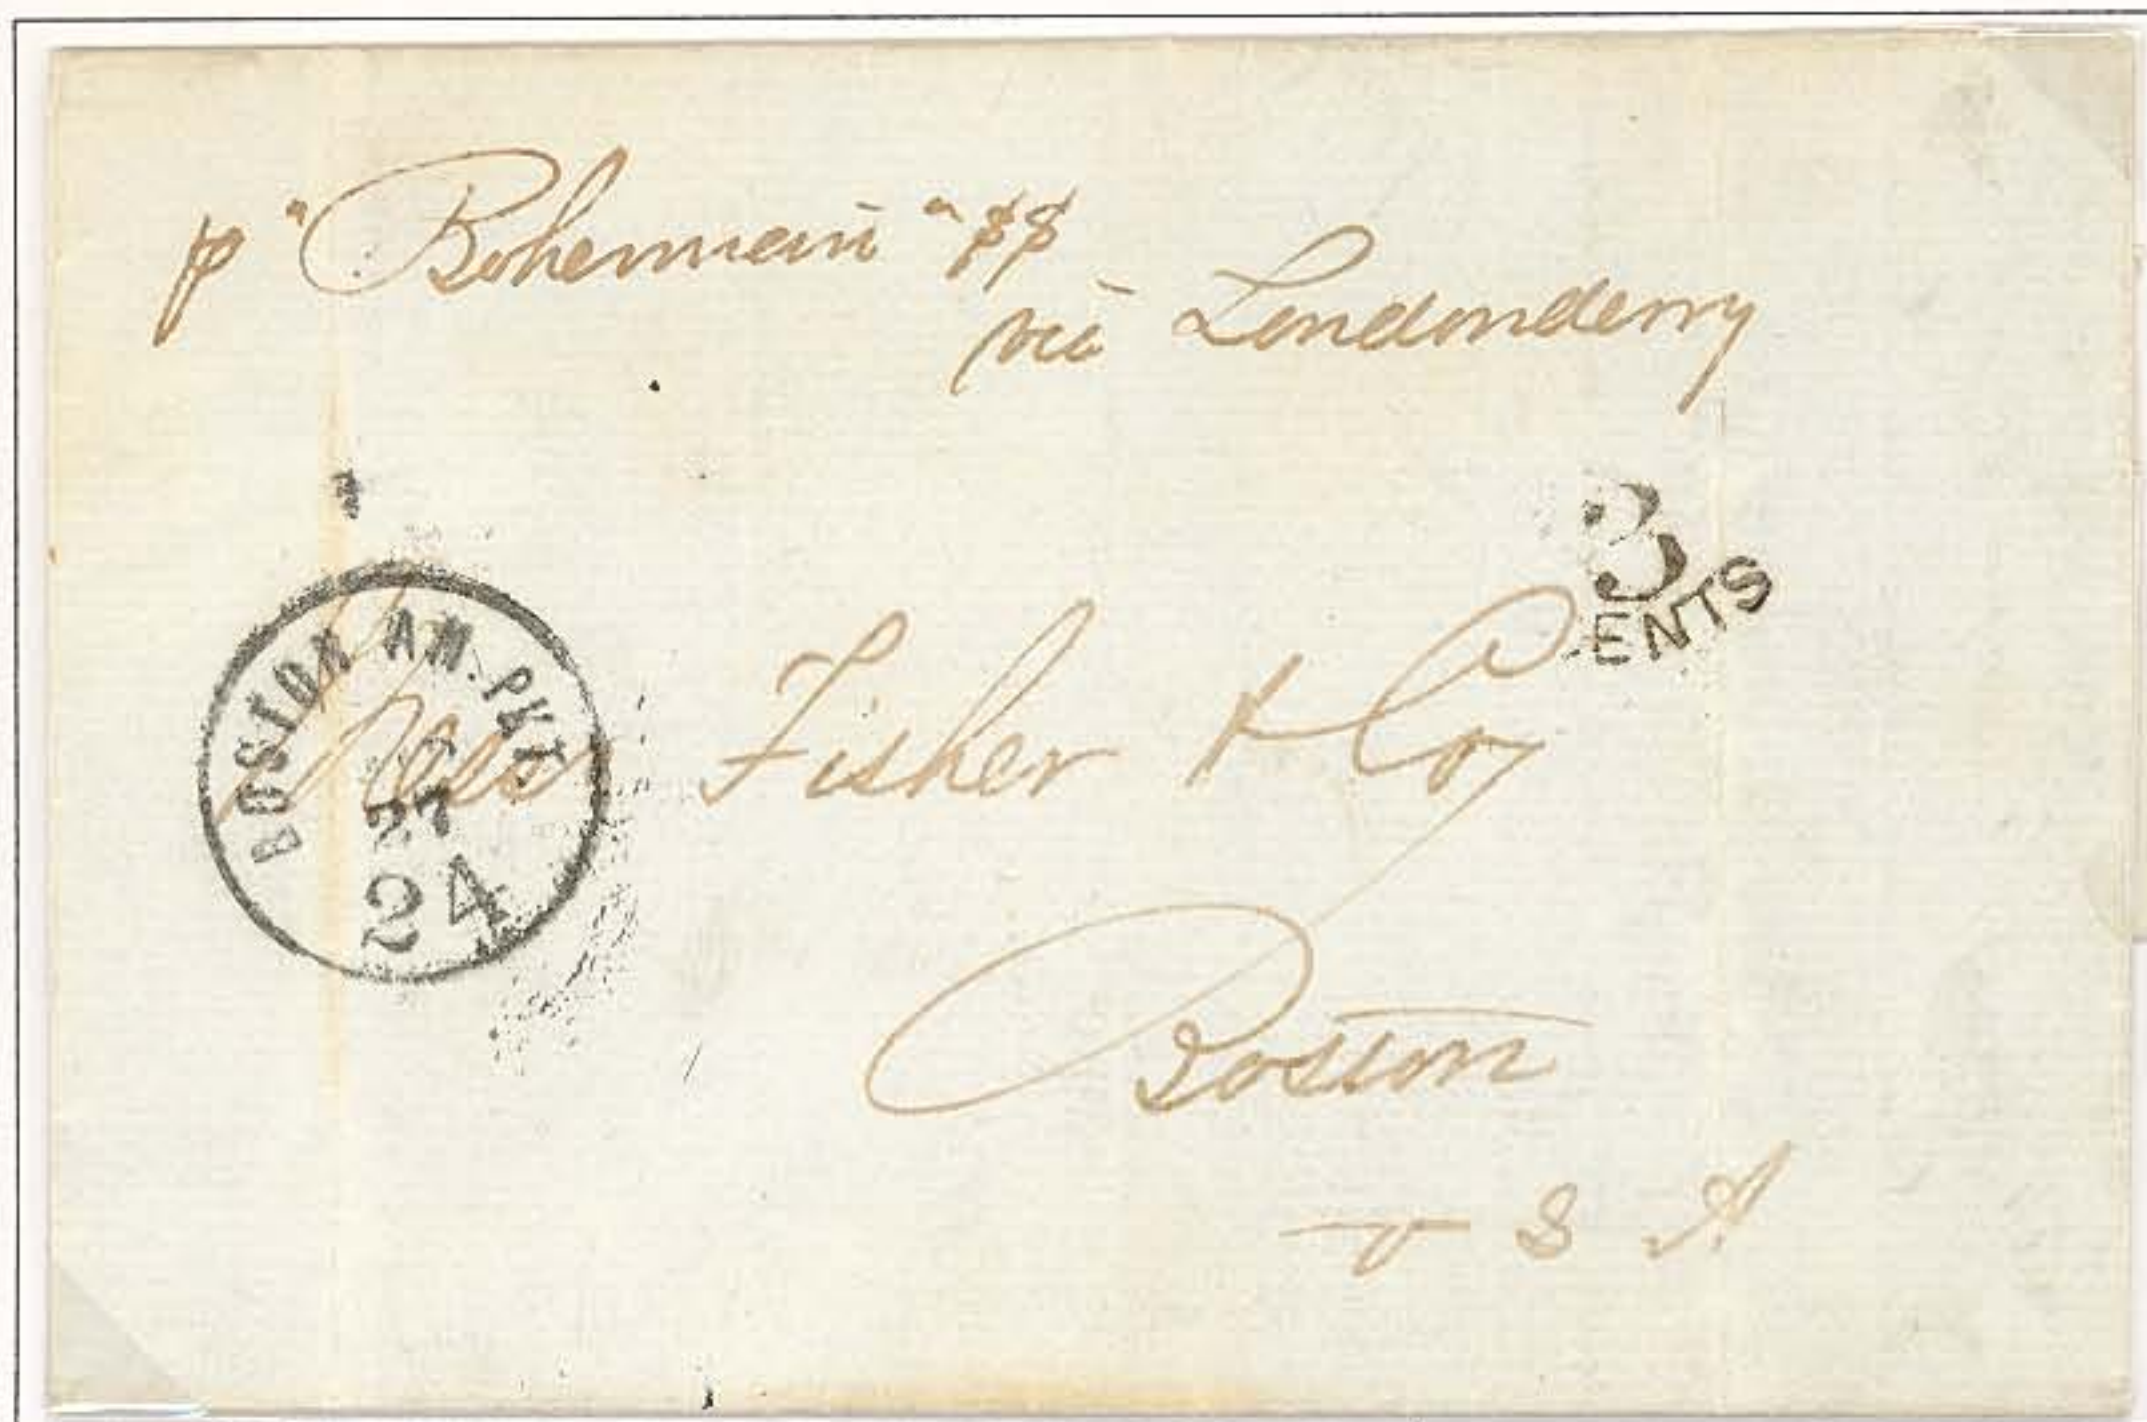 p "Bohemian" SS
via Londonderry
3
CENTS
BOSTON AM. PKT
27
24
Mess Fisher & Coy
Boston
U S A